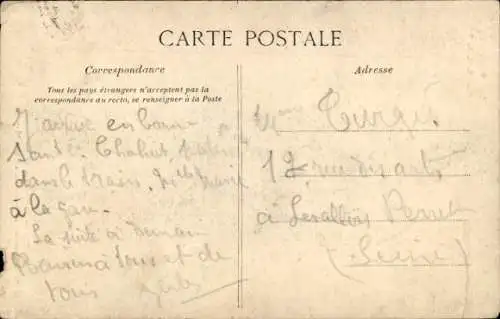 CARTE POSTALE
Correspondance
Tous les pays étrangers n'acceptent pas la
correspondance au recto, se renseigner à la Poste
J'arrive en bonne
Santé.
dans le train.
à la gare.
La suite à demain
Baisers à tous et de
tous
Adresse
Mme
12 rue des arts
à Levallois Perret
(Seine)